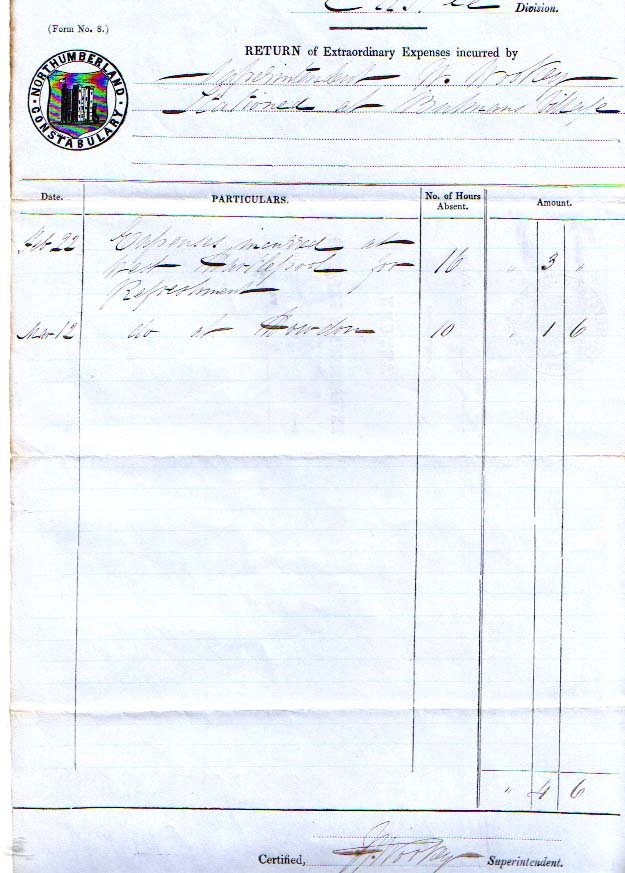 Division.
(Form No. 8.)
RETURN of Extraordinary Expenses incurred by
NORTHUMBERLAND CONSTABULARY
Superintendent
Stationed at Bulmans Village
Date. PARTICULARS. No. of Hours Absent. Amount.
Feb 22 Expenses incurred at
West Hartlepool for 16 " 3 "
Refreshment
Mar 12 do at Howdon 10 " 1 6
" 4 6
Certified, Superintendent.